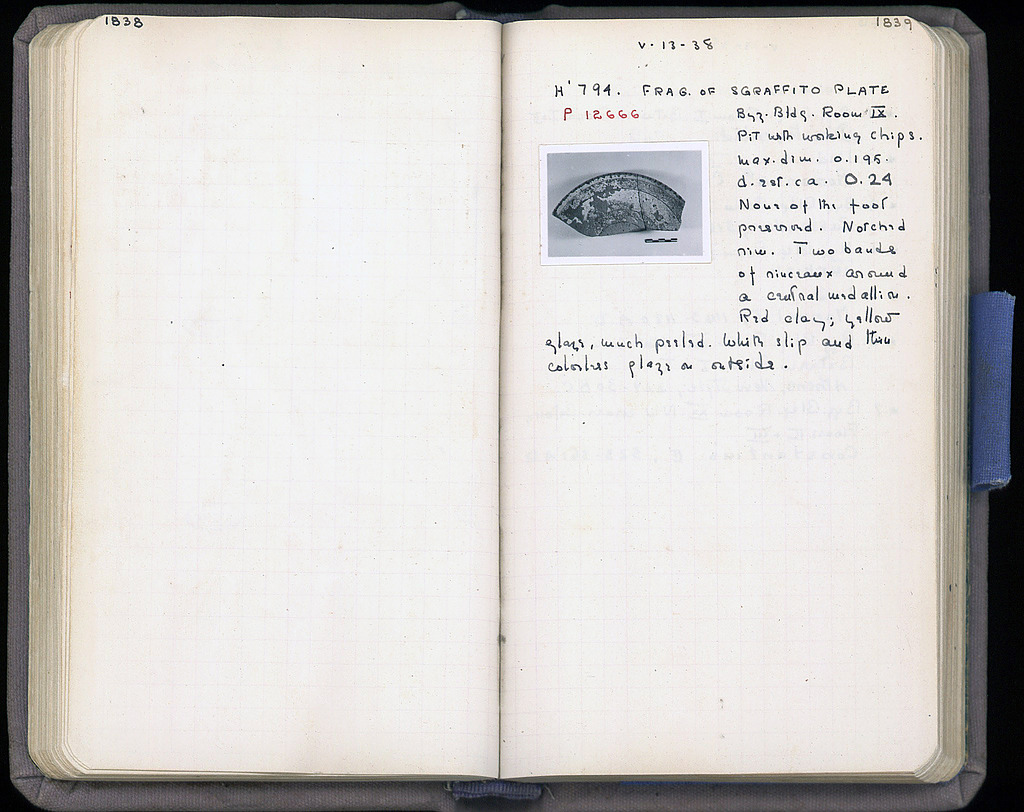 1838
1839
V-13-38
H'794. FRAG. OF SGRAFFITO PLATE
P 12666
Byz. Bldg. Room IX.
Pit with working chips.
max. dim. 0.195.
d. est. ca. 0.24
None of the foot
preserved. Notched
rim. Two bands
of rinceaux around
a central medallion.
Red clay; yellow
glaze, much peeled. White slip and thin
colorless glaze on outside.